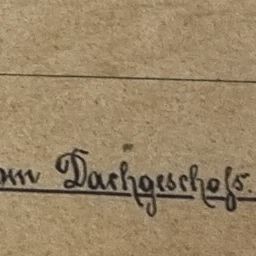 Dachgeschoß.